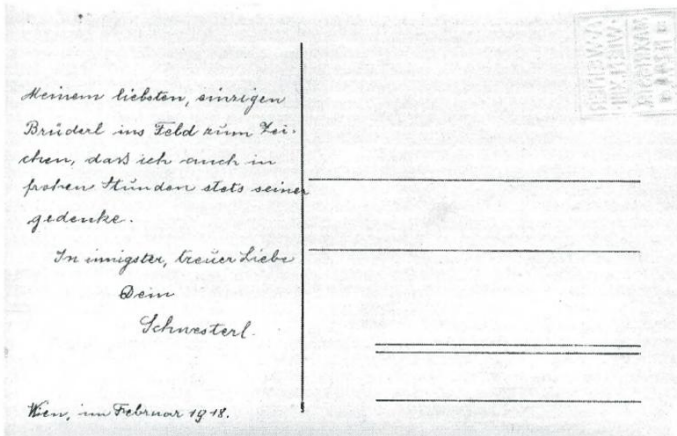 Meinem liebsten, einzigen
Brüderl ins Feld zum Zei-
chen, daß ich auch in
frohen Stunden stets seiner
gedenke.
In innigster, treuer Liebe
Dein
Schwesterl.
Wien, im Februar 1918.